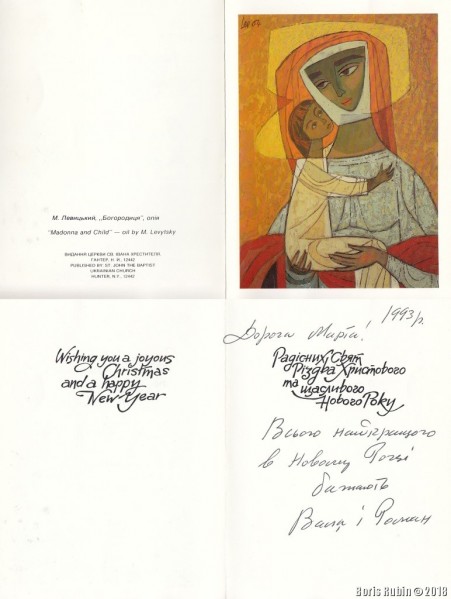 М. Левицький, ,,Богородиця", олія
"Madonna and Child" — oil by M. Levytsky
ВИДАННЯ ЦЕРКВИ СВ. ІВАНА ХРЕСТИТЕЛЯ,
ГАНТЕР, Н. Й., 12442
PUBLISHED BY: ST. JOHN THE BAPTIST
UKRAINIAN CHURCH
HUNTER, N.Y., 12442
Wishing you a joyous
Christmas
and a happy
New Year
1993 р.
Дорога Марія!
Радісних Свят
Різдва Христового
та щасливого
Нового Року
Всього найкращого
в Новому Році
бажають
і Роман
Boris Rubin © 2018